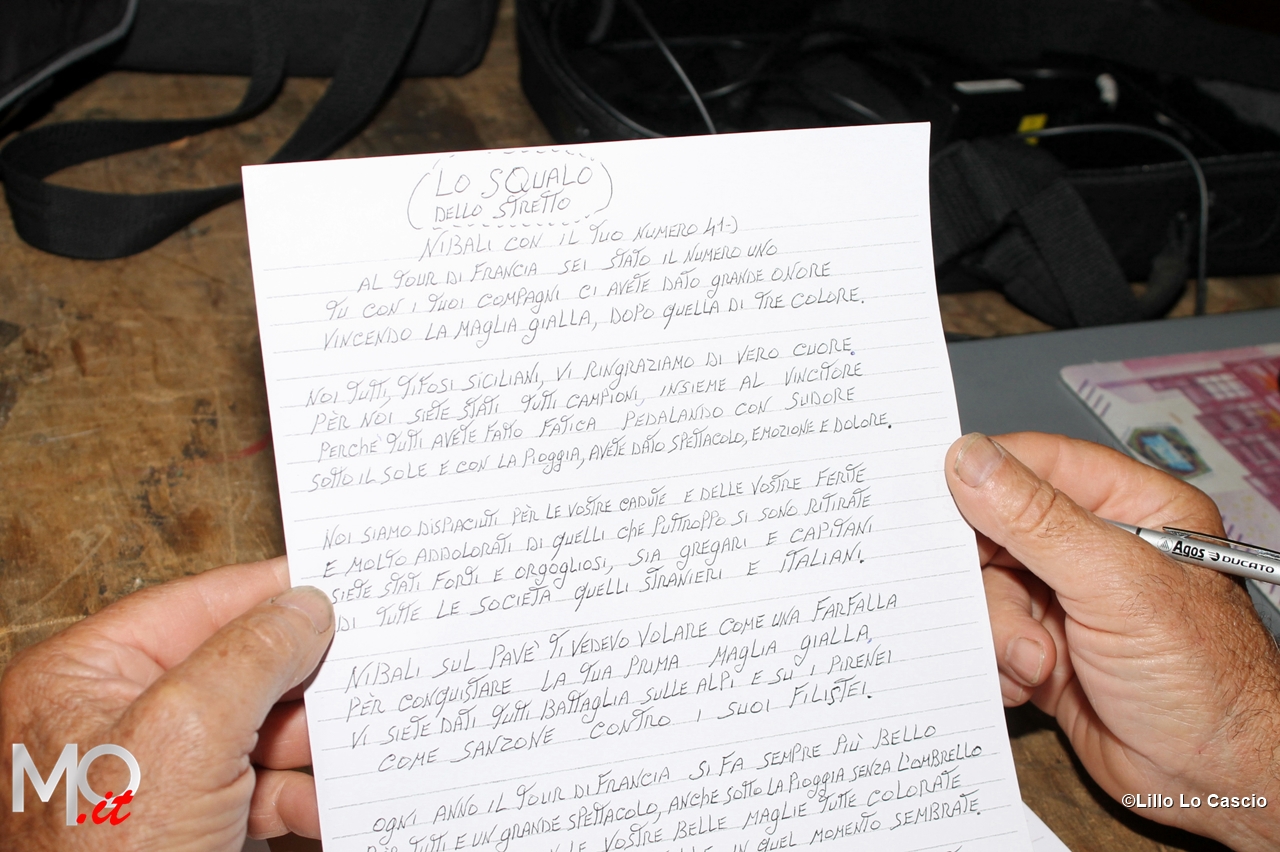 LO SQUALO
DELLO STRETTO
NIBALI CON IL TUO NUMERO 41-)
AL TOUR DI FRANCIA SEI STATO IL NUMERO UNO
TU CON I TUOI COMPAGNI CI AVETE DATO GRANDE ONORE
VINCENDO LA MAGLIA GIALLA, DOPO QUELLA DI TRE COLORE.
NOI TUTTI, TIFOSI SICILIANI, VI RINGRAZIAMO DI VERO CUORE.
PÈR NOI SIETE STATI TUTTI CAMPIONI, INSIEME AL VINCITORE
PERCHE' TUTTI AVETE FATTO FATICA PEDALANDO CON SUDORE
SOTTO IL SOLE E CON LA PIOGGIA, AVETE DATO SPETTACOLO, EMOZIONE E DOLORE.
NOI SIAMO DISPIACIUTI PÈR LE VOSTRE CADUTE E DELLE VOSTRE FERITE
E MOLTO ADDOLORATI DI QUELLI CHE PUTTROPPO SI SONO RITIRATE
SIETE STATI FORTI E ORGOGLIOSI, SIA GREGARI E CAPITANI
DI TUTTE LE SOCIETA' QUELLI STRANIERI E ITALIANI.
NIBALI SUL PAVE' TI VEDEVO VOLARE COME UNA FARFALLA
PÈR CONQUISTARE LA TUA PRIMA MAGLIA GIALLA,
VI SIETE DATI TUTTI BATTAGLIA SULLE ALPI E SU I PIRENEI
COME SANZONE CONTRO I SUOI FILISTEI.
OGNI ANNO IL TOUR DI FRANCIA SI FA SEMPRE PIÙ BELLO
PÈR TUTTI E UN GRANDE SPETTACOLO, ANCHE SOTTO LA PIOGGIA SENZA L'OMBRELLO
LE VOSTRE BELLE MAGLIE TUTTE COLORATE
IN QUEL MOMENTO SEMBRATE.
Agos DUCATO
MO.it
©Lillo Lo Cascio